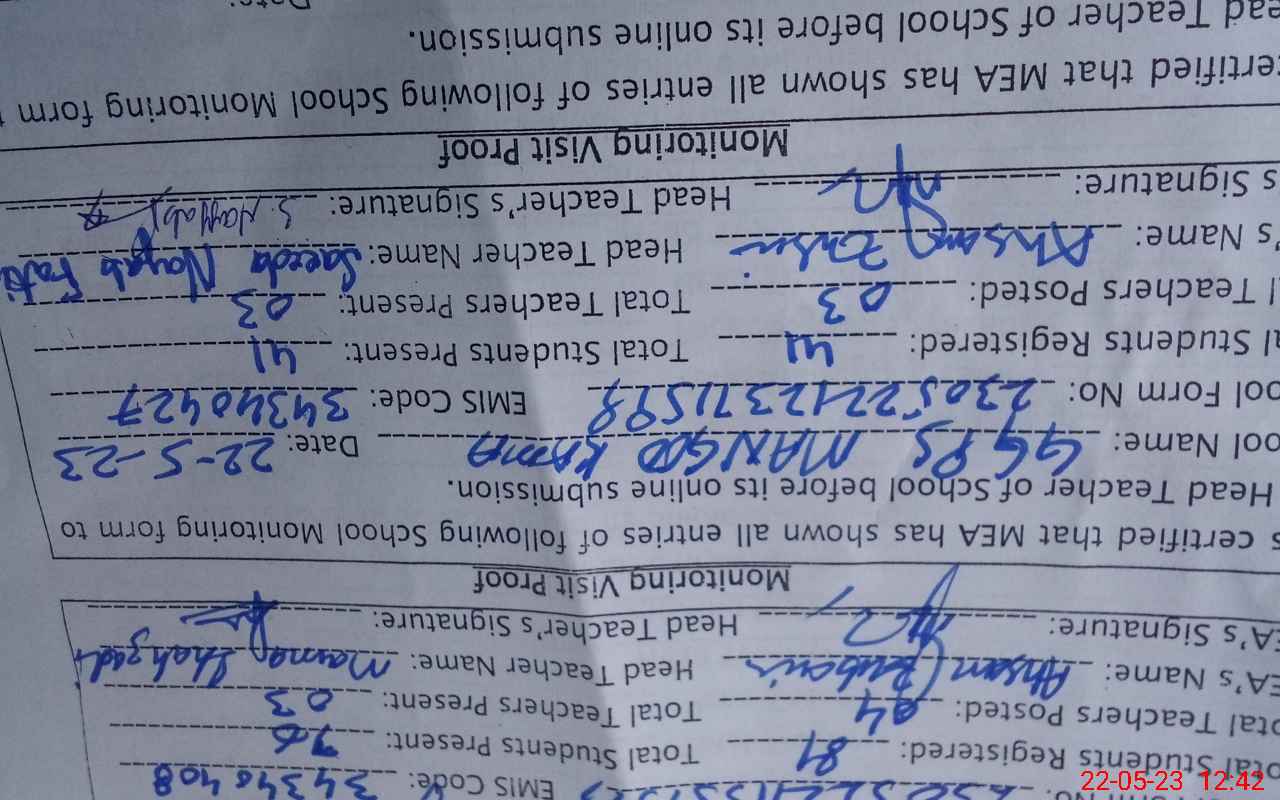 EMIS Code: 34340408
Total Students Registered: 81 Total Students Present: 76
Total Teachers Posted: 04 Total Teachers Present: 03
EA's Name: Ahsan Head Teacher Name: Mamona Shahzadi
EA's Signature: Head Teacher's Signature:
Monitoring Visit Proof
s certified that MEA has shown all entries of following School Monitoring form to
Head Teacher of School before its online submission.
ool Name: GGPS MANGOO KATHA Date: 22-5-23
ool Form No: EMIS Code: 34340427
al Students Registered: 41 Total Students Present: 41
l Teachers Posted: 03 Total Teachers Present: 03
's Name: Ahsan Head Teacher Name: Saeeda Nayab
's Signature: Head Teacher's Signature: S. Nayyab
Monitoring Visit Proof
ertified that MEA has shown all entries of following School Monitoring form
ead Teacher of School before its online submission.
Date:
22-05-23 12:42